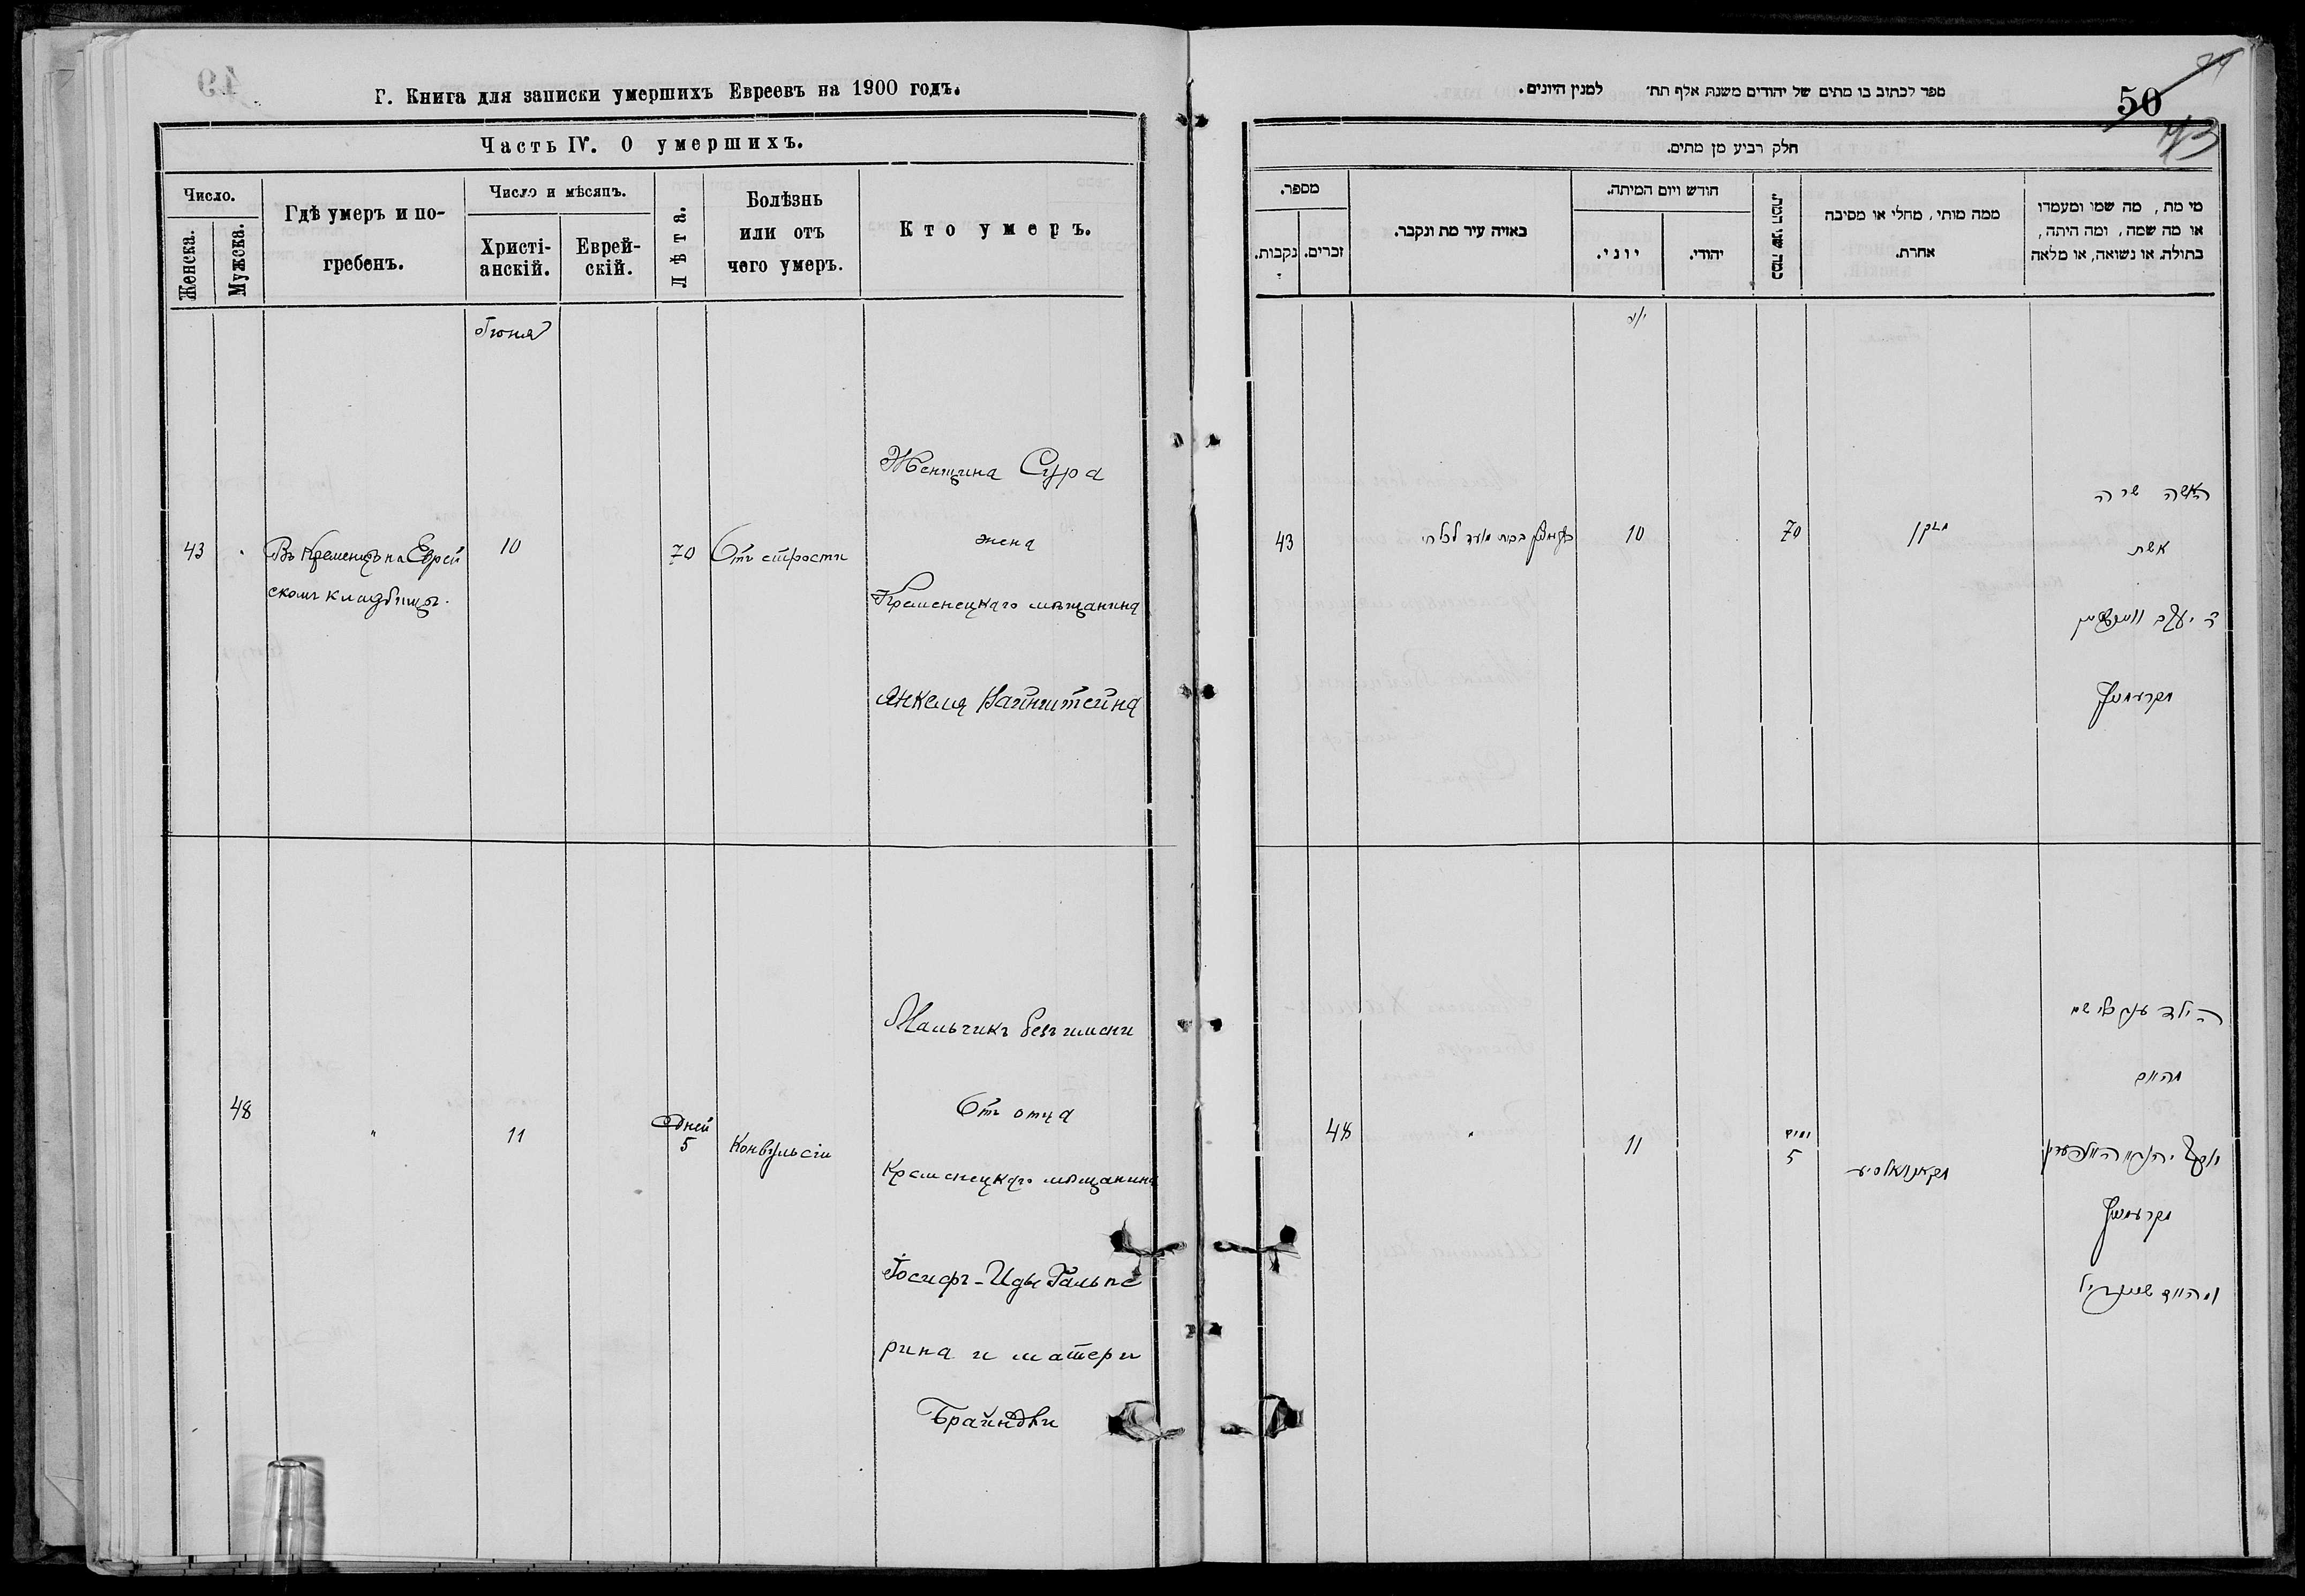 Г. Книга для записки умершихъ Евреевъ на 1900 годъ.
Часть IV. О умершихъ.
Число.
Женска.
Мужска.
Гдѣ умеръ и по-
гребенъ.
Число и мѣсяцъ.
Христі-
анскій.
Еврей-
скій.
Лѣта.
Болѣзнь
или отъ
чего умеръ.
Кто умеръ.
Іюня
43
Въ Кременцѣ на Еврей
скомъ кладбищѣ.
10
70
Отъ старости
Женщина Сура
жена
Кременецкаго мѣщанина
Янкеля Вайнштейна
48
"
11
Дней
5
Конвульсіи
Мальчикъ безъ имени
Отъ отца
Кременецкаго мѣщанина
Іосифъ-Иды Гальпе
рина и матери
Брайндли
ספר לכתוב בו מתים של יהודים משנת אלף תת׳ למנין היונים.
50
חלק רביע מן מתים.
מספר.
נקבות.
זכרים.
באיזה עיר מת ונקבר.
חודש ויום המיתה.
יוני.
יהודי.
כמה שני המת.
ממה מותי, מחלי או מסיבה
אחרת.
מי מת, מה שמו ומעמדו
או מה שמה, ומה היתה,
בתולה, או נשואה, או מלאה
43
10
70
מזקן
האשה שרה
אשת
ר יעקב וויינשטיין
מקרעמניץ
48
"
11
ימים
5
מקאנוואלסיע
מקרעמניץ